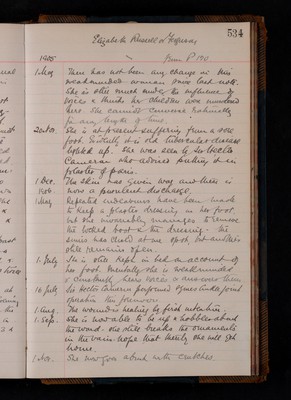 534
Elizabeth Russell or Ferguson
1905 from P 190
1. May There has not been any change in this
weakminded woman since last note.
She is still much under the influence of
voices & thinks her children are murdered
here. She cannot converse rationally
for any length of time.
20. Oct. She is at present suffering from a sore
foot. Evidently it is old tubercular disease
lighted up. She was seen by Sir Hector
Cameron who advised putting it in
plaster of paris.
1 Dec. The skin has given way and there is
1906. now a purulent discharge.
1 Mar Repeated endeavours have been made
to keep a plaster dressing on her foot
but she invariably manages to remove
the locked boot & the dressing. The
sinus has closed at one spot, but another
still remains open.
1. July She is still kept in bed on account of
her foot. Mentally she is weakminded
& constantly hears voices & answers them
16 July Sir Hector Cameron performed
operation this forenoon.
1 Aug. The wound is healing by first intention.
1. Sep. She is now able to be up & hobbles about
the ward. She still breaks the ornaments
in the vain hope that thereby she will get
home.
1 Nov. She now goes about with crutches.